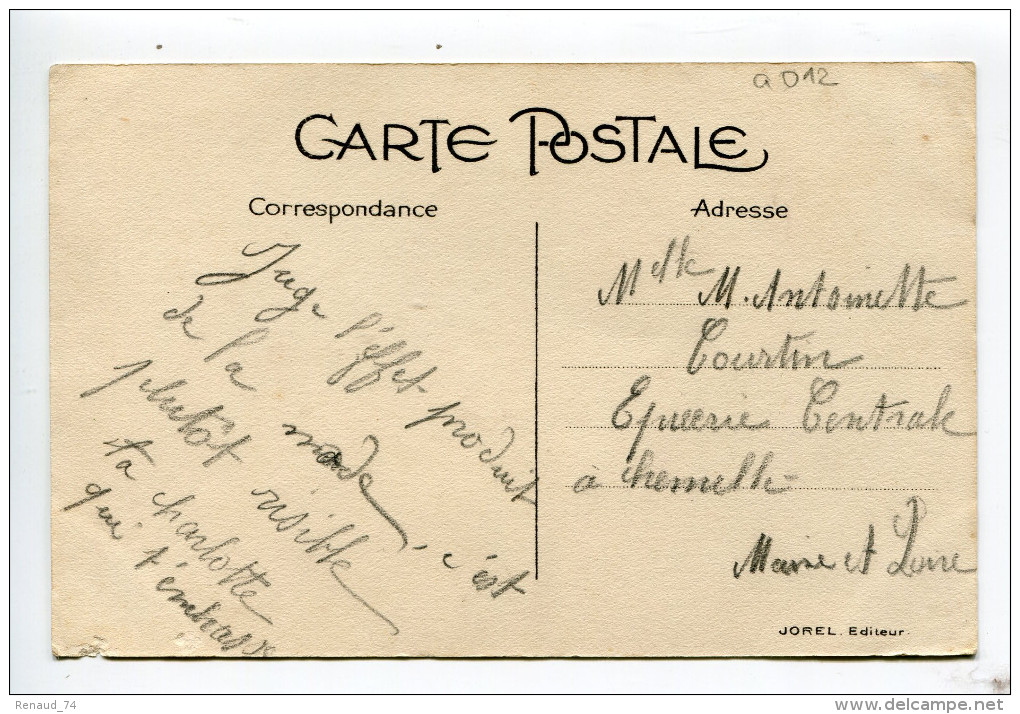 a D12
CARTE POSTALE
Correspondance
Adresse
Juge l'éffet produit
de la mode, c'est
plutôt risible
ta charlotte
qui t'émbrasse
Melle M. Antoinette
Courtin
Epicerie Centrale
à chemille-
Maine et Loire
JOREL. Editeur.
Renaud_74
www.delcampe.net